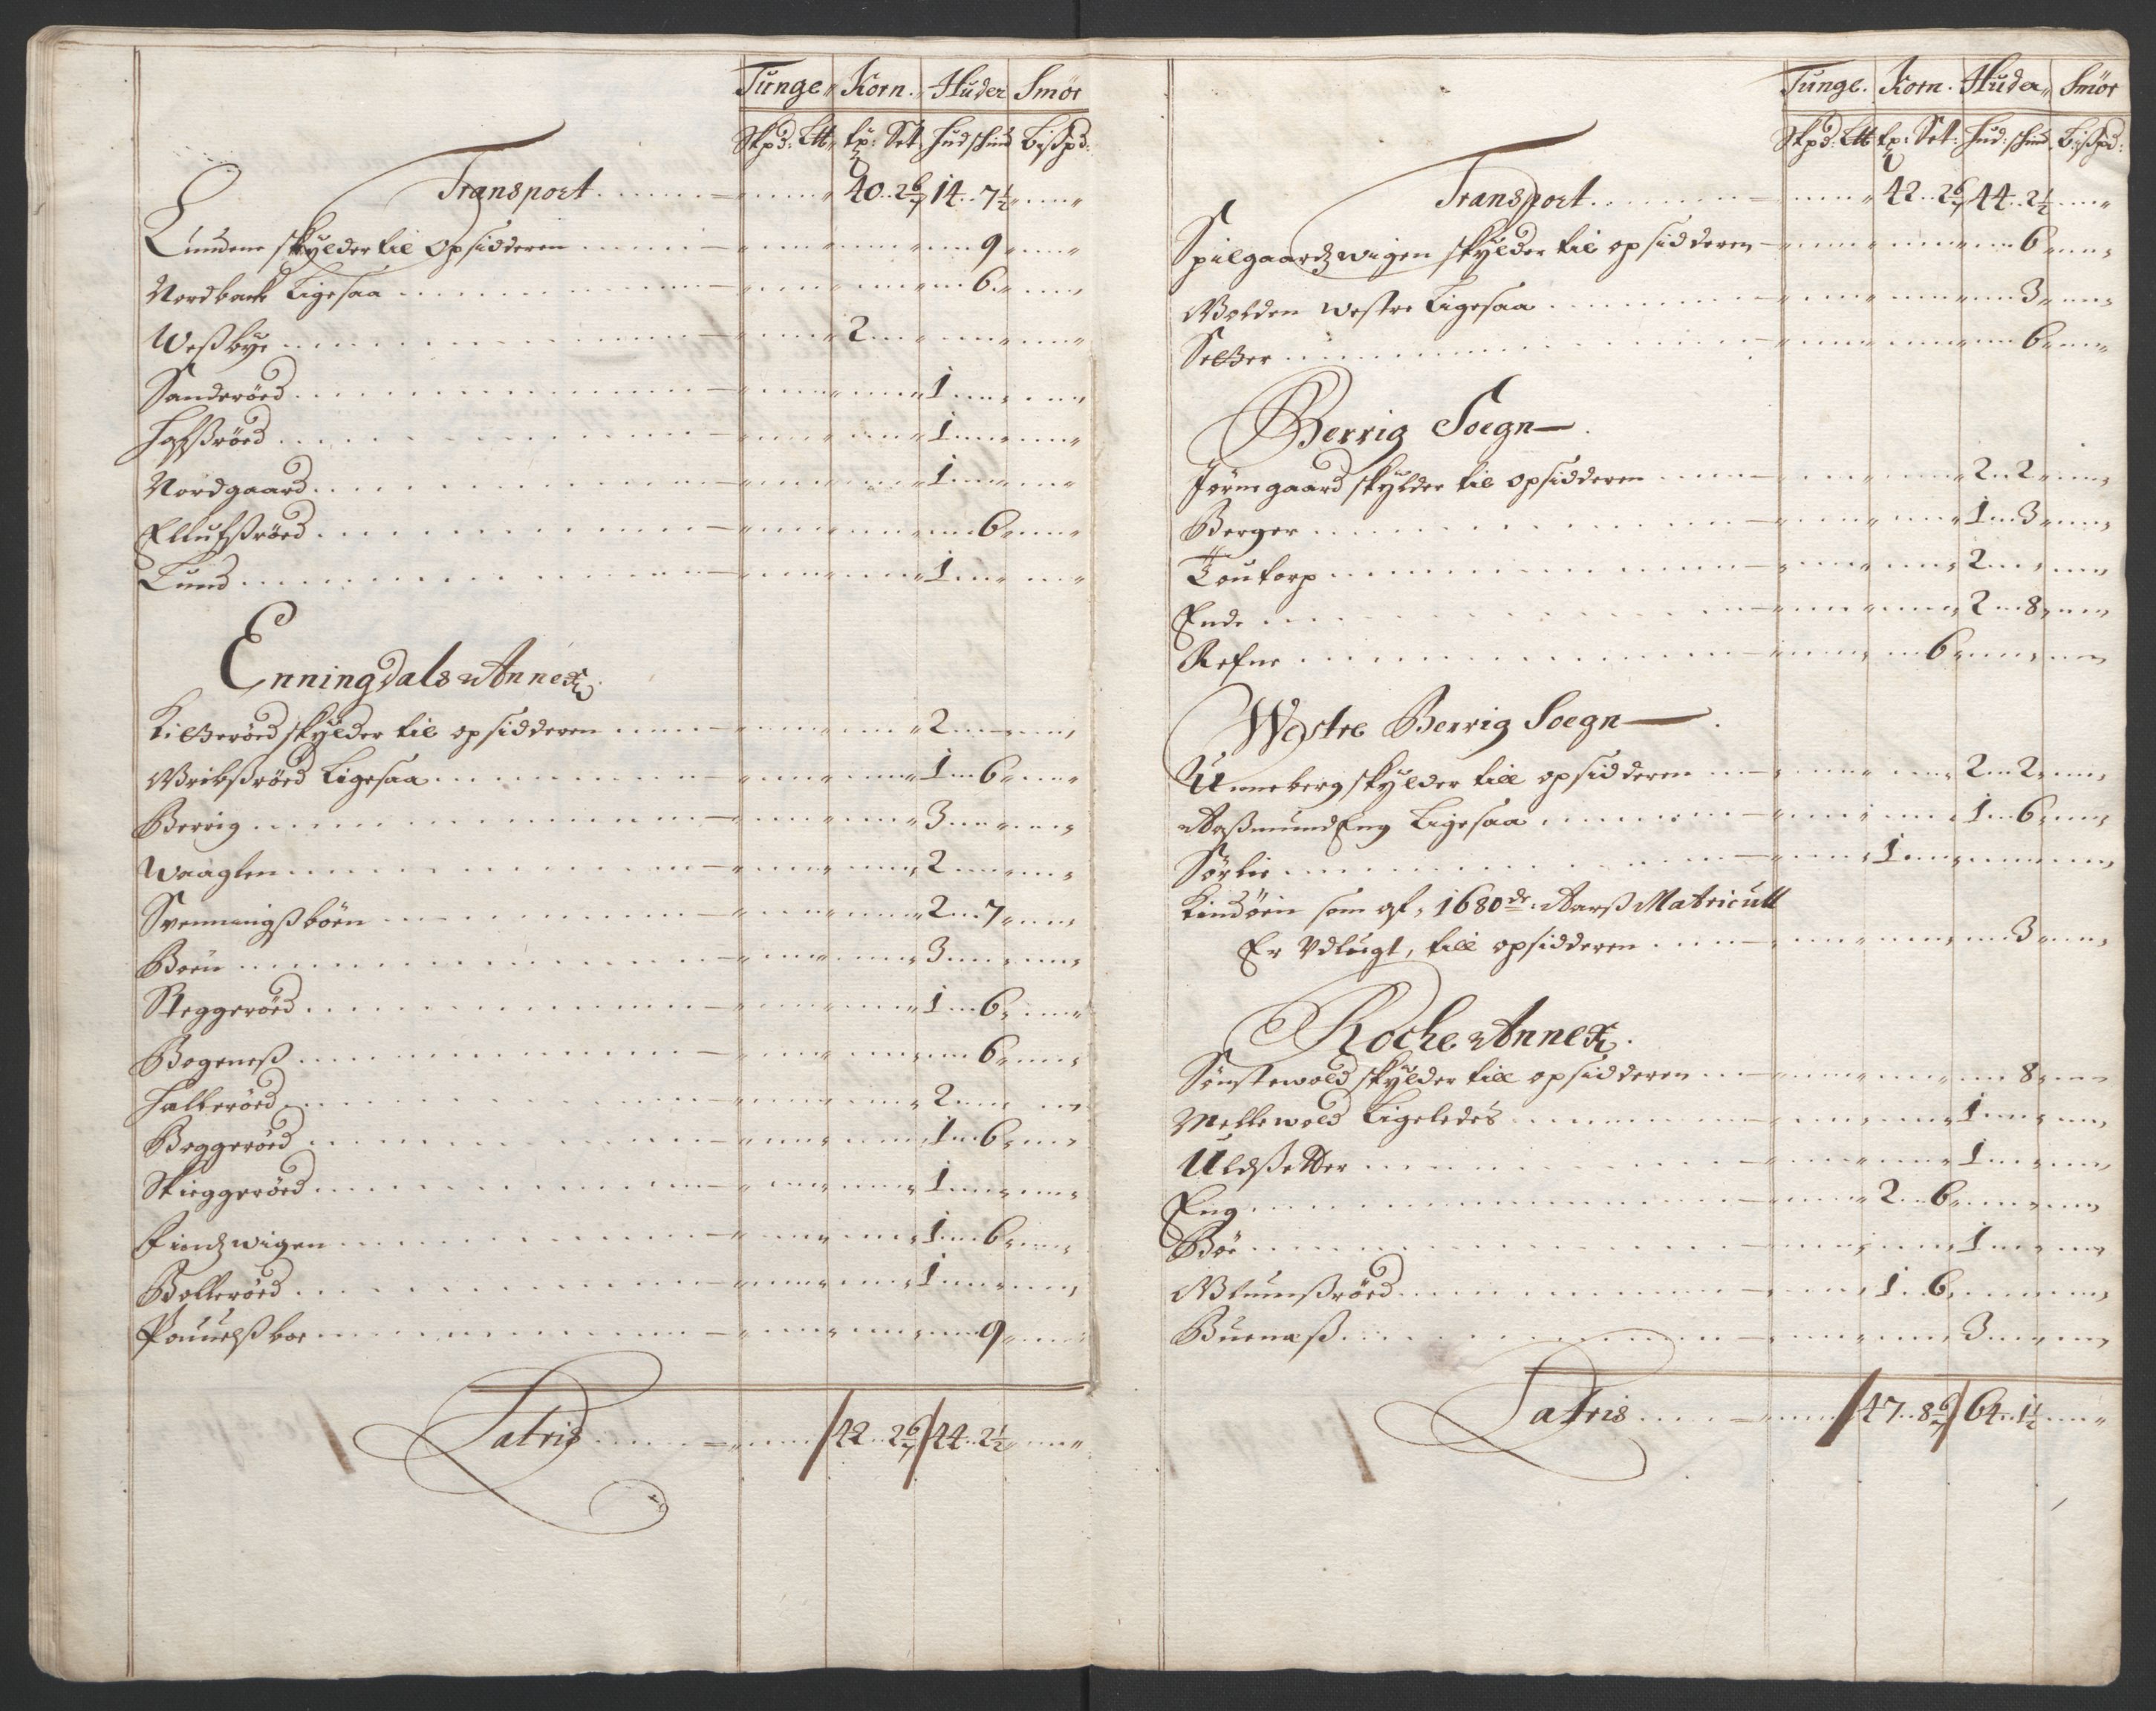 Tunge Korn. Huder Smör
Skpd: Ltt tp: Set Hud skind Bißpd:
Transport 40 .. 2 6/7 14 .. 7 1/2
Lundene skylder til opsidderen 9
Nordbacke Ligesaa 6
Weßbye 2
Sanderöed 1
Hafßröed 1
Nordgaard 1
Ellufßröed 6
Lund 1
Enningdals Annex
Kilßeröed skylder til opsidderen 2
Wribßröed Ligesaa 1 6
Berrig 3
Waaglen 2
Svenningßböen 2 7
Böen 3
Steggeröed 1 6
Bogeneß 6
Halleröed 2
Beggeröed 1 6
Skieggeröed 1
Findzwigen 1 6
Bolleröed 1
Pouuelßboe 9
Latris 42 .. 2 6/7 44 .. 2 1/2
Tunge. Korn. Huder Smör
Skpd: Ltt tp: Set: Hud: skind Bißpd:
Transport 42 .. 2 6/7 44 .. 2 1/2
Spilgaardzwigen skylder til opsidderen 6
Wolden westre Ligesaa 3
Selßer 6
Berrig Sogn
Jörngaard skylder til opsidderen 2 2
Berger 1 3
Toutorp 2
Ende 2 8
Refne 6
Westre Berrig Soegn
Unneberg skylder till opsidderen 2 2
Aaßmund Eng Ligesaa 1 6
Sörlie 1
Kindöen som af 1680 de Aarß Matricull
Er Vdlugt, till opsidderen 3
Rocke Annex.
Sönstewold skylder till opsidderen 8
Mellewold Ligeledes 1
Uldßetter 1
Eng 2 6
Böe 1
Blumßröed 1 6
Buenæß 3
Latris 47 .. 8 6/7 64 .. 1 1/2